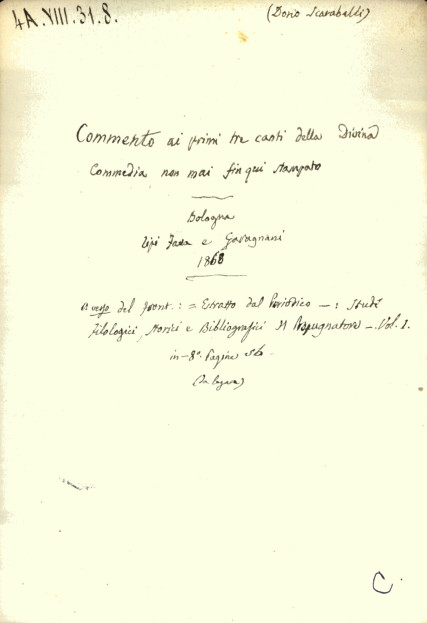 4A.VIII.31.8.
(Dorio Scarabelli)
Commento ai primi tre canti della Divina
Commedia non mai fin qui stampato
Bologna
Tipi Fava e Garagnani
1868
A verso del front.: = Estratto dal Periodico — : Studi
Filologici, Storici e Bibliografici Il Propugnatore — Vol. I.
in-8°. Pagine
(In legare)
C.